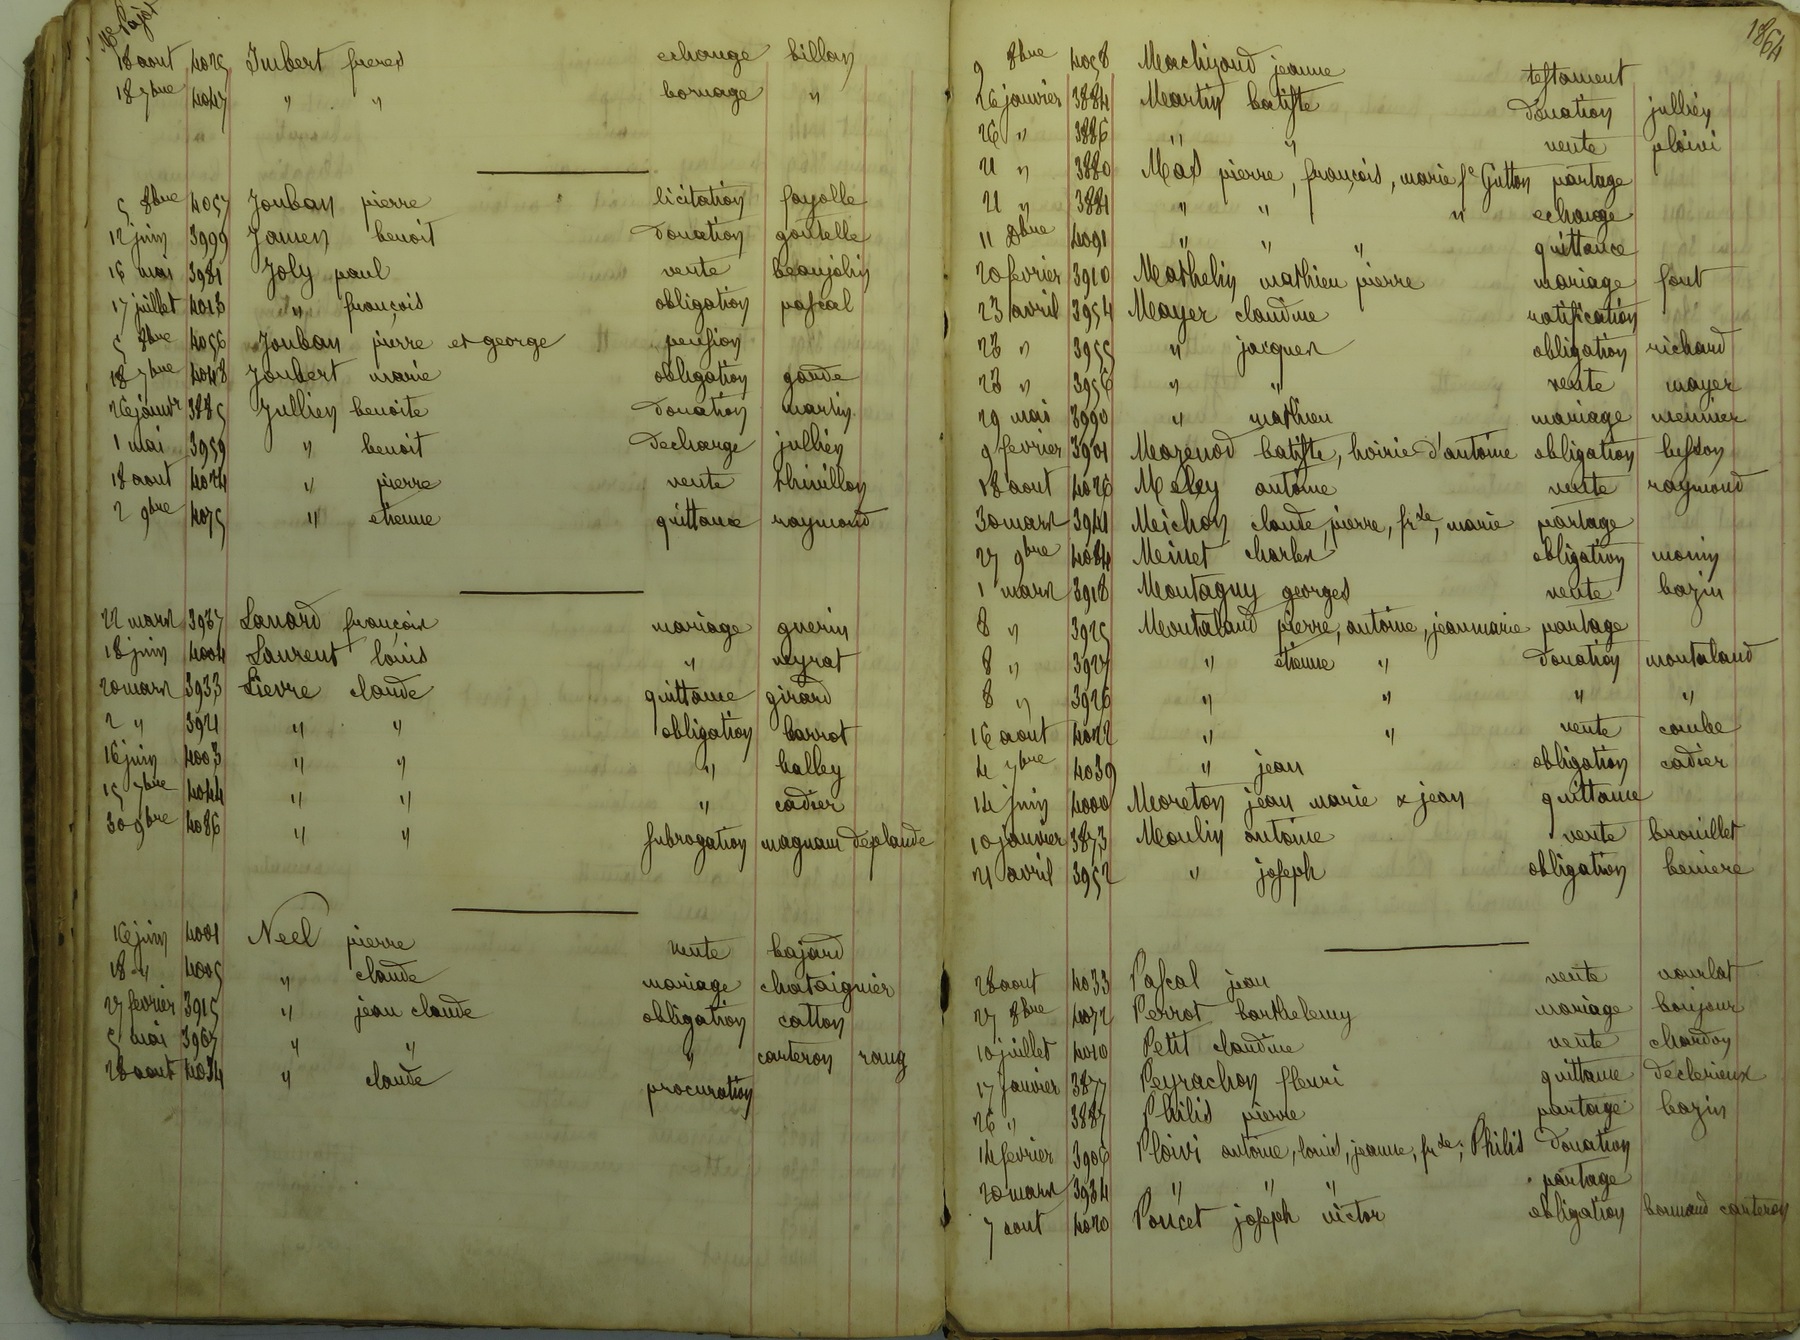 Me Pajot
18 aout 4025 Imbert freres echange billon
18 7bre 4047 " " bornage "
5 8bre 4057 Jouban pierre licitation fayolle
12 juin 3999 Jamen benoit Donation goutelle
16 mai 3981 Joly paul vente beaujolin
17 juillet 4013 " françois obligation pascal
5 8bre 4056 Jouban pierre et george pension
18 7bre 4048 Joubert marie obligation gonde
26 janvr 3885 Jullien benoite Donation martin
1 mai 3959 " benoit Decharge jullien
18 aout 4024 " pierre vente thivillon
2 9bre 4075 " etienne quittance raymond
22 mars 3937 Lanard françois mariage guerin
18 juin 4004 Laurent louis " neyrat
20 mars 3933 Lievre claude quittance girard
2 " 3921 " " obligation barrot
16 juin 4003 " " " balley
15 7bre 4044 " " " cadier
30 9bre 4086 " " subrogation magnam Deplaude
16 juin 4001 Neel pierre vente bajard
18 " 4005 " claude mariage chataignier
27 fevrier 3915 " jean claude obligation catton
5 mai 3967 " " " carteron rony
28 aout 4034 " claude procuration
1864
9 8bre 4058 Machizaud jeanne testament
26 janvier 3884 Martin batiste Donation jullien
26 " 3886 " " vente ploivi
21 " 3880 Mas pierre, françois, marie fe Gutton partage
21 " 3881 " " " echange
11 8bre 4091 " " " quittance
20 fevrier 3910 Mathelin mathieu pierre mariage font
23 avril 3954 Mayer claudine ratification
23 " 3955 " jacques obligation richard
23 " 3956 " " vente mayer
29 mai 3990 " mathieu mariage meunier
9 fevrier 3901 Mazenod batiste, hoirie d'antoine obligation besson
18 aout 4026 Meley antoine vente raymond
30 mars 3941 Meichon claude, pierre, frse, marie partage
27 9bre 4084 Meinet charles obligation monin
1 mars 3918 Montagny georges vente bazin
8 " 3925 Montaland pierre, antoine, jeanmarie partage
8 " 3927 " etienne " Donation montaland
8 " 3926 " " " "
16 aout 4022 " " vente combe
4 7bre 4039 " jean obligation cadier
14 juin 4000 Moreton jean marie & jean quittance
10 janvier 3873 Moulin antoine vente brouillet
21 avril 3952 " joseph obligation beniere
28 aout 4033 Pascal jean vente vourlat
27 8bre 4072 Perrot barthelemy mariage bonjour
10 juillet 4010 Petit claudine vente chardon
17 janvier 3877 Peyrachon fleuri quittance Declerieux
26 " 3887 Philis pierre partage bazin
14 fevrier 3906 Ploivi antoine, louis, jeanne, frse, Philis Donation
20 mars 3934 " " " partage
7 aout 4020 Poncet joseph victor obligation bonnand carteron